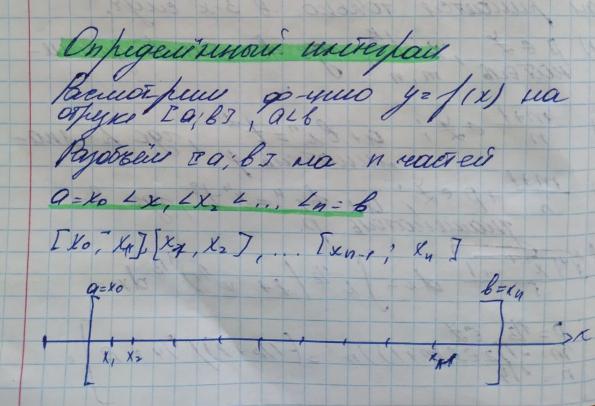 Определённый интеграл
Расмотрим ф-цию y=f(x) на
отрзке [a;b], a<b
Разобьём [a;b] на n частей
a=x₀ < x₁ < x₂ < ... <ₙ = b
[x₀; x₁] [x₁, x₂], ... [xₙ₋₁; xₙ]
a=x₀ b=xₙ
x₁ x₂ xₙ₋₁ x